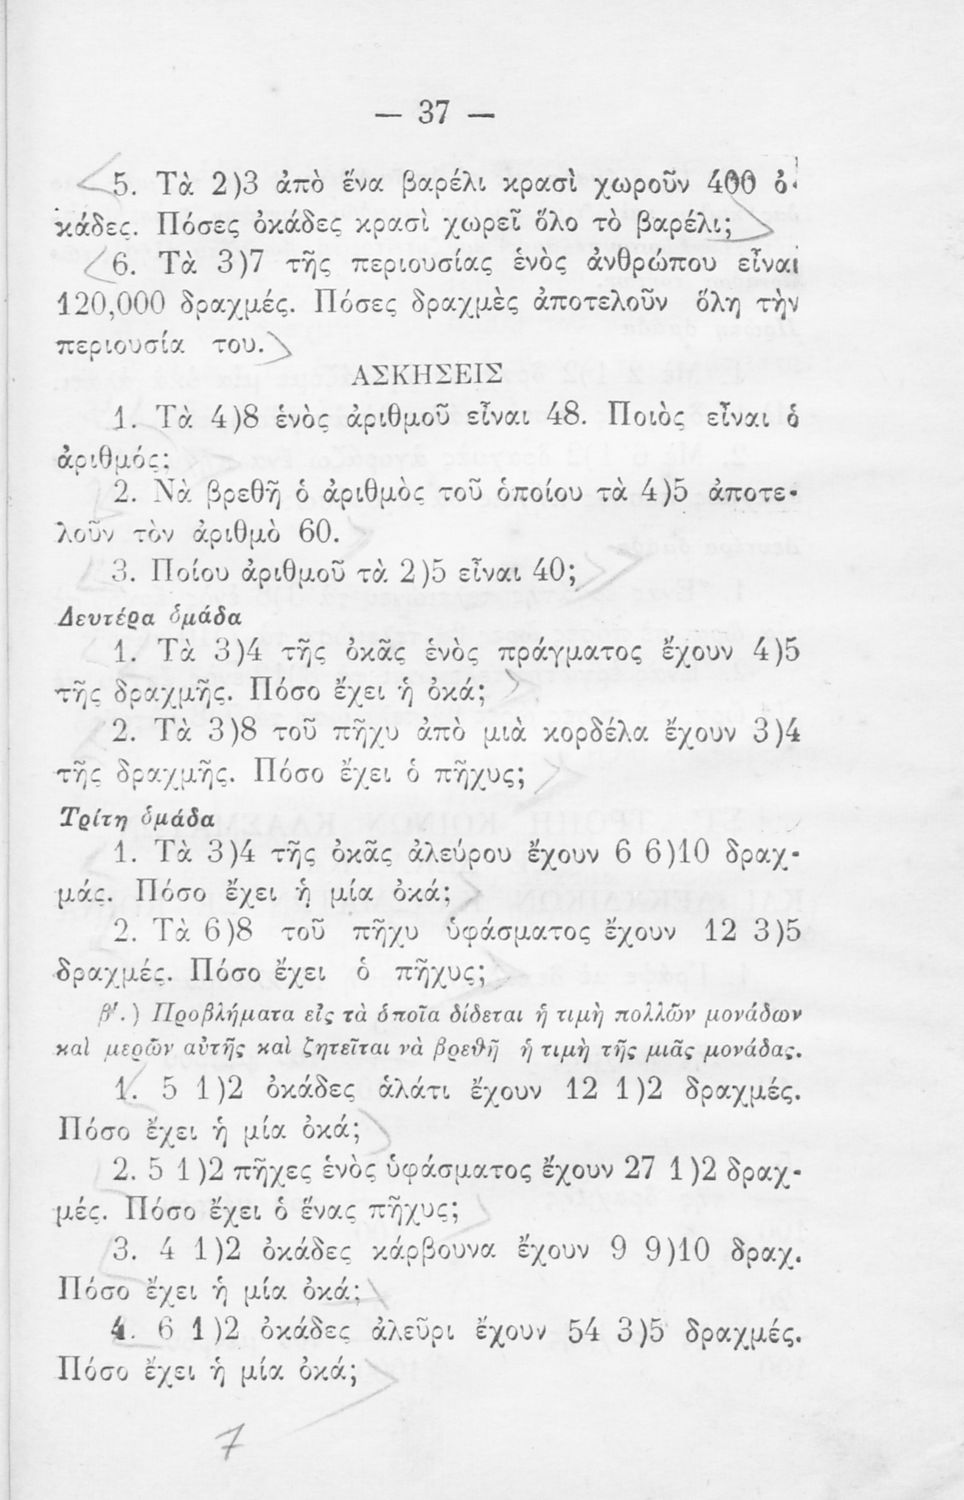 — 37 —
5. Τὰ 2)3 ἀπὸ ἕνα βαρέλι κρασὶ χωροῦν 400 ὀ-
κάδες. Πόσες ὀκάδες κρασὶ χωρεῖ ὅλο τὸ βαρέλι;
6. Τὰ 3)7 τῆς περιουσίας ἑνὸς ἀνθρώπου εἶναι
120,000 δραχμές. Πόσες δραχμὲς ἀποτελοῦν ὅλη τὴν
περιουσία του.
ΑΣΚΗΣΕΙΣ
1. Τὰ 4)8 ἑνὸς ἀριθμοῦ εἶναι 48. Ποιὸς εἶναι ὁ
ἀριθμός;
2. Νὰ βρεθῆ ὁ ἀριθμὸς τοῦ ὁποίου τὰ 4)5 ἀποτε-
λοῦν τὸν ἀριθμὸ 60.
3. Ποίου ἀριθμοῦ τὰ 2)5 εἶναι 40;
Δευτέρα ὁμάδα
1. Τὰ 3)4 τῆς ὀκᾶς ἑνὸς πράγματος ἔχουν 4)5
τῆς δραχμῆς. Πόσο ἔχει ἡ ὀκά;
2. Τὰ 3)8 τοῦ πῆχυ ἀπὸ μιὰ κορδέλα ἔχουν 3)4
τῆς δραχμῆς. Πόσο ἔχει ὁ πῆχυς;
Τρίτη ὁμάδα
1. Τὰ 3)4 τῆς ὀκᾶς ἀλεύρου ἔχουν 6 6)10 δραχ-
μάς. Πόσο ἔχει ἡ μία ὀκά;
2. Τὰ 6)8 τοῦ πῆχυ ὑφάσματος ἔχουν 12 3)5
δραχμές. Πόσο ἔχει ὁ πῆχυς;
β'.) Προβλήματα εἰς τὰ ὁποῖα δίδεται ἡ τιμὴ πολλῶν μονάδων
καὶ μερῶν αὐτῆς καὶ ζητεῖται νὰ βρεθῆ ἡ τιμὴ τῆς μιᾶς μονάδας.
1. 5 1)2 ὀκάδες ἁλάτι ἔχουν 12 1)2 δραχμές.
Πόσο ἔχει ἡ μία ὀκά;
2. 5 1)2 πῆχες ἑνὸς ὑφάσματος ἔχουν 27 1)2 δραχ-
μές. Πόσο ἔχει ὁ ἕνας πῆχυς;
3. 4 1)2 ὀκάδες κάρβουνα ἔχουν 9 9)10 δραχ.
Πόσο ἔχει ἡ μία ὀκά;
4. 6 1)2 ὀκάδες ἀλεῦρι ἔχουν 54 3)5 δραχμές.
Πόσο ἔχει ἡ μία ὀκά;
7